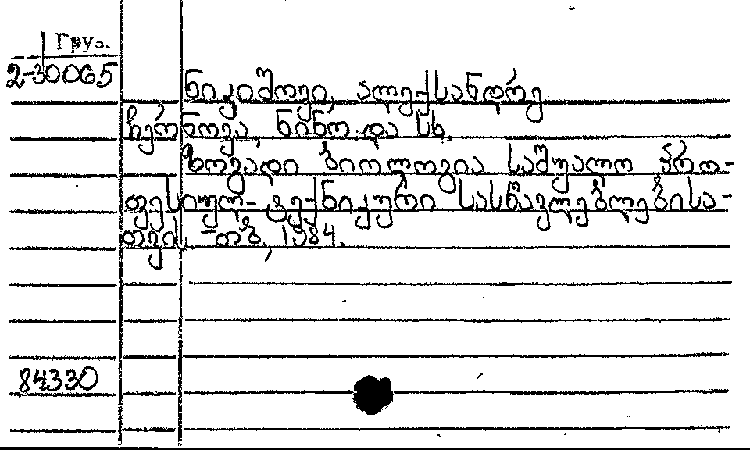 Груз.
2-30065
ნიკიშოვი, ალექსანდრე
ჩერნოვა, ნინო და სხ.
ზოგადი ბიოლოგია საშუალო პრო-
ფესიულ-ტექნიკური სასწავლებლებისა-
თვის. -თბ., 1984.
84330